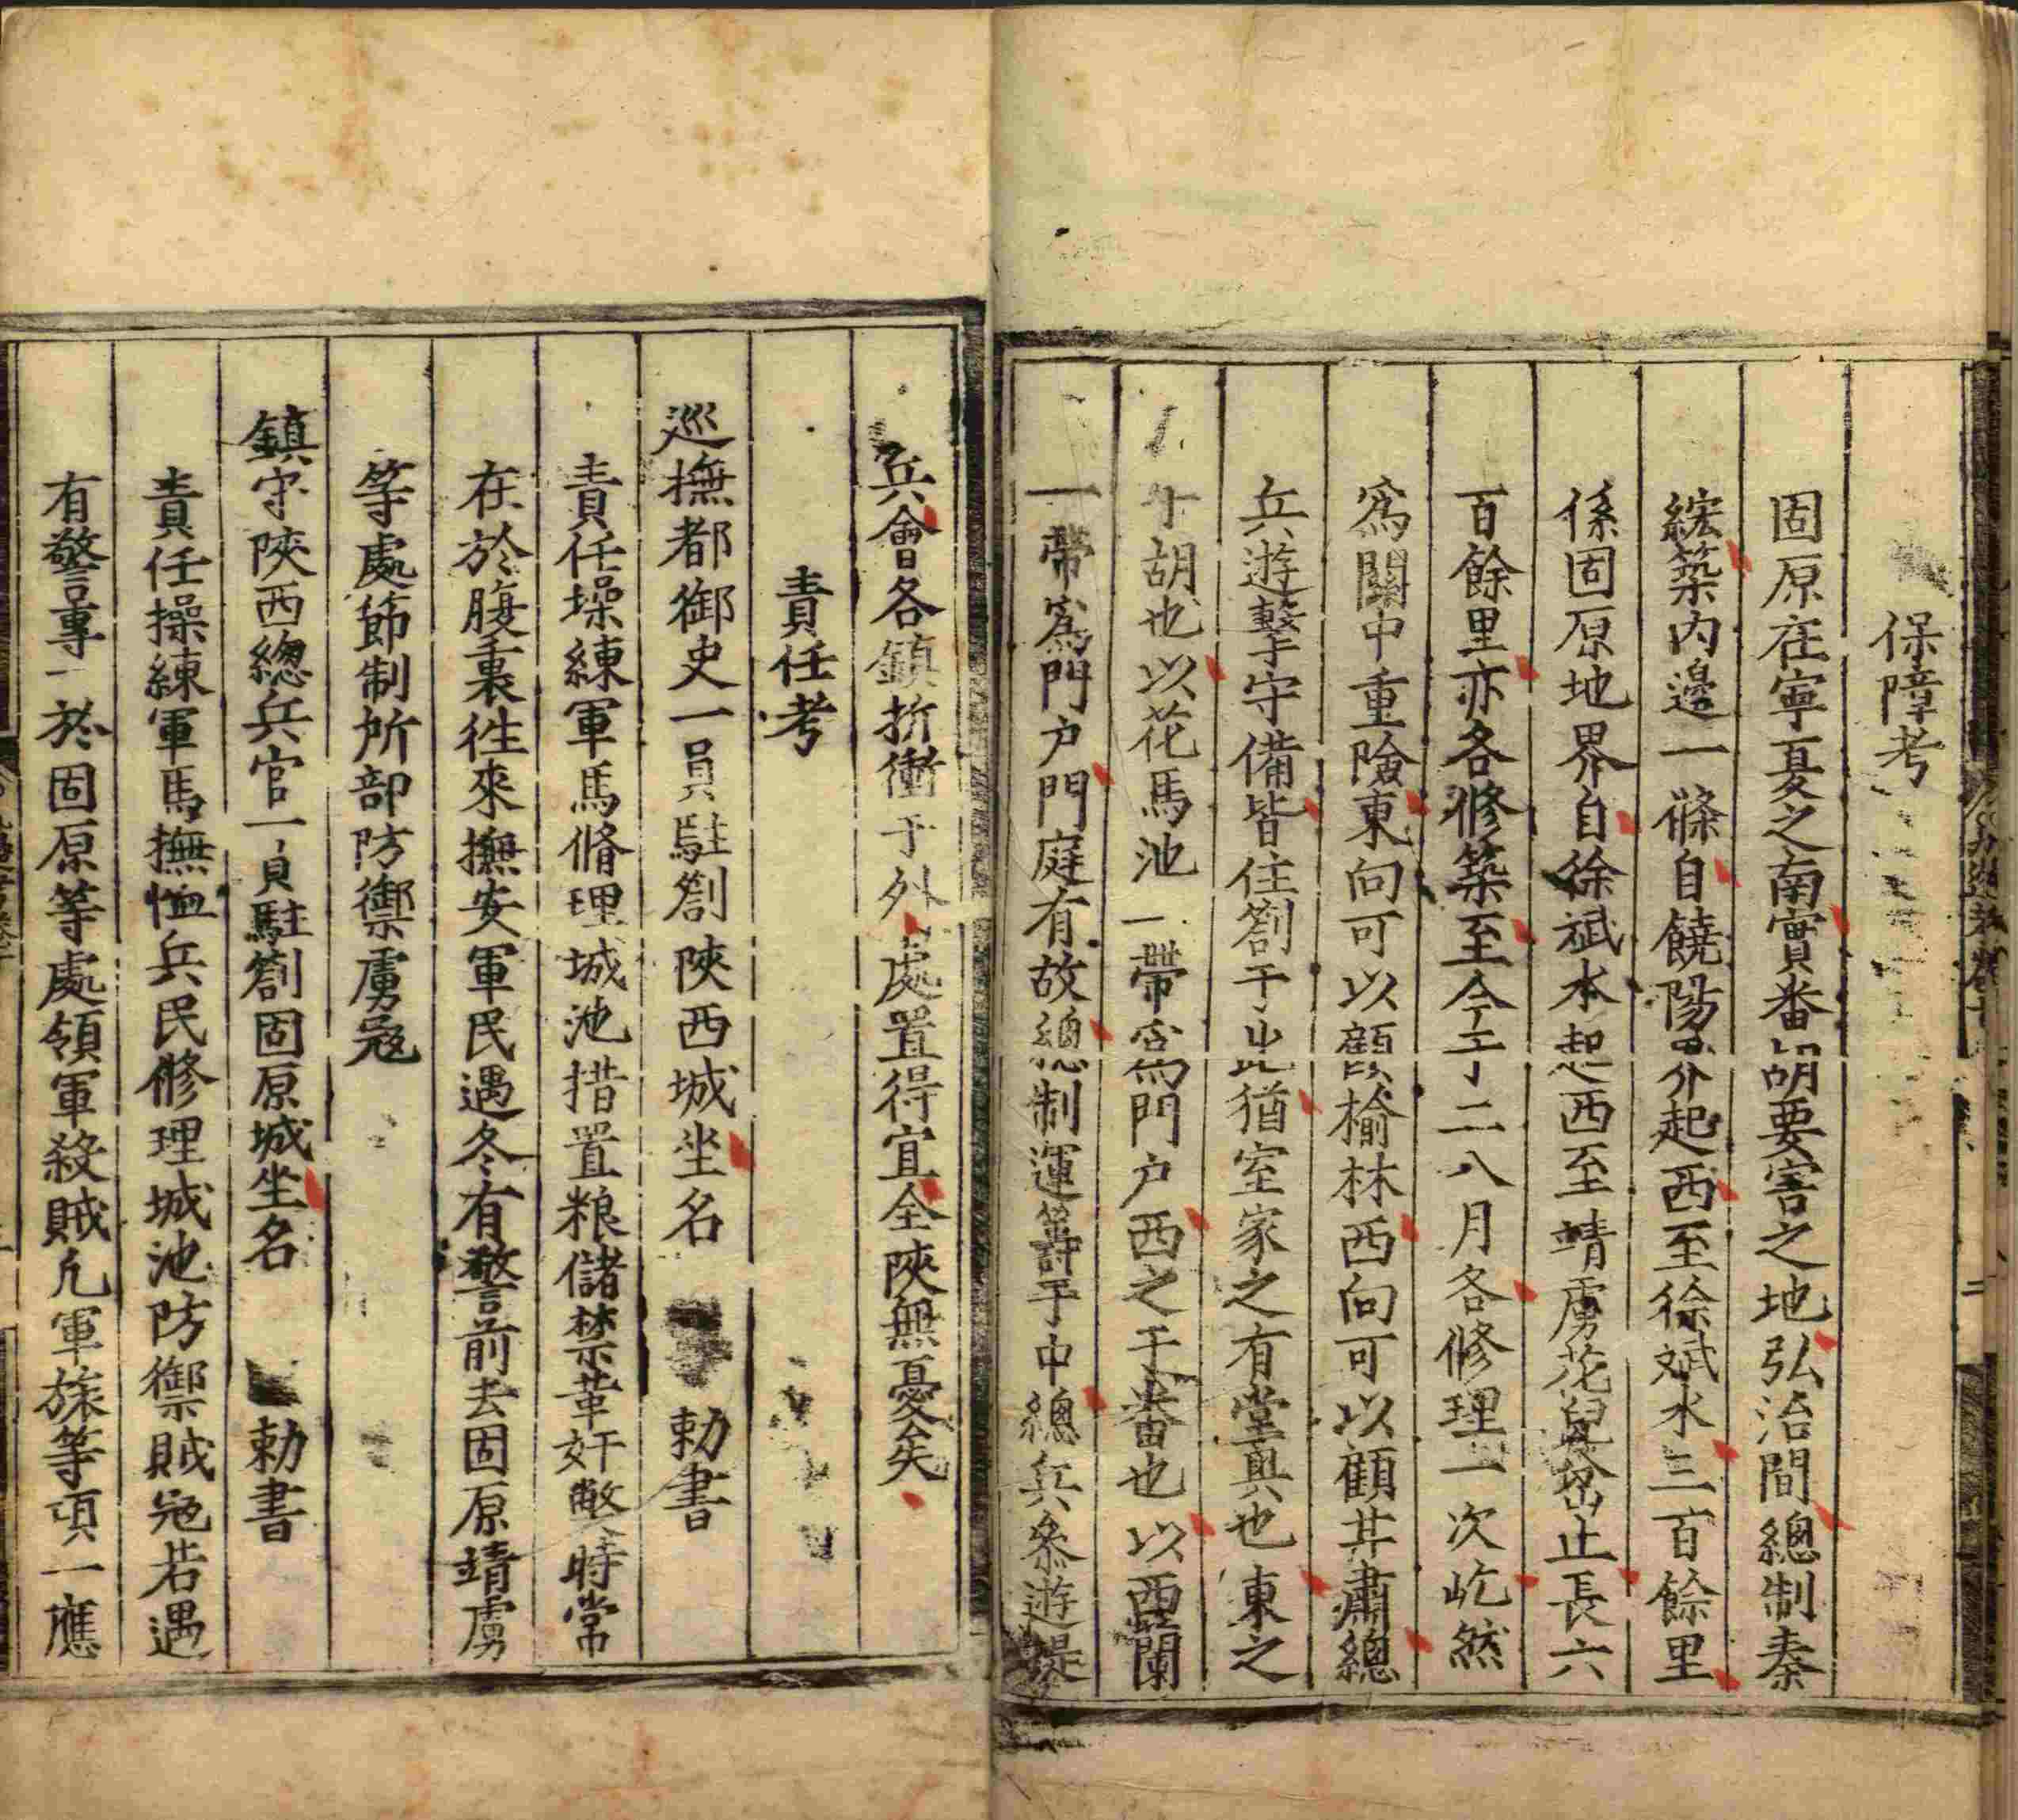 保障考
固原在寧夏之南實番胡要害之地弘治間總制秦
綋築内邉一條自饒陽界起西至徐斌水三百餘里
係固原地界自徐斌水起西至靖虜花兒岔止長六
百餘里亦各修築至今于二八月各修理一次屹然
爲關中重險東向可以顧榆林西向可以顧甘肅總
兵遊擊守備皆住劄于此猶室家之有堂奥也東之
于胡也以花馬池一帶爲門户西之于番也以西蘭
一帶爲門户門庭有故總制運籌于中總兵叅遊提
兵會各鎮折衝于外處置得宜全陝無憂矣
責任考
巡撫都御史一員駐劄陝西城坐名 勅書
責任操練軍馬脩理城池措置粮儲禁革奸弊時常
在於腹裏徃來撫安軍民遇冬有警前去固原靖虜
等處節制所部防禦虜寇
鎮守陝西總兵官一員駐劄固原城坐名 勅書
責任操練軍馬撫恤兵民修理城池防禦賊宼若遇
有警專一於固原等處領軍殺賊凢軍旅等項一應